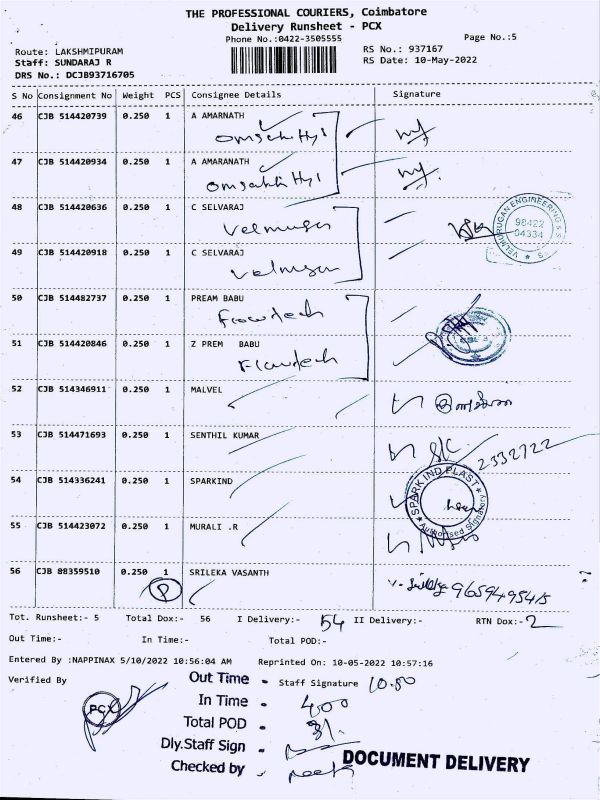 THE PROFESSIONAL COURIERS, Coimbatore
Delivery Runsheet - PCX
Phone No.:0422-3505555
Page No.:5
Route: LAKSHMIPURAM
Staff: SUNDARAJ R
DRS No.: DCJB93716705
RS No.: 937167
RS Date: 10-May-2022
S No Consignment No Weight PCS Consignee Details Signature
46 CJB 514420739 0.250 1 A AMARNATH
47 CJB 514420934 0.250 1 A AMARANATH
48 CJB 514420636 0.250 1 C SELVARAJ
Velmurgan
VELMURUGAN ENGINEERING
98422
04334
49 CJB 514420918 0.250 1 C SELVARAJ
50 CJB 514482737 0.250 1 PREAM BABU
Flowtech
51 CJB 514420846 0.250 1 Z PREM BABU
Flowtech
52 CJB 514346911 0.250 1 MALVEL
53 CJB 514471693 0.250 1 SENTHIL KUMAR
2332722
54 CJB 514336241 0.250 1 SPARKIND
SPARK IND PLAST
Authorised Signatory
55 CJB 514423072 0.250 1 MURALI .R
56 CJB 88359510 0.250 1 SRILEKA VASANTH
P
9659495415
Tot. Runsheet:- 5 Total Dox:- 56 I Delivery:- 54 II Delivery:- RTN Dox:- 2
Out Time:- In Time:- Total POD:-
Entered By :NAPPINAX 5/10/2022 10:56:04 AM Reprinted On: 10-05-2022 10:57:16
Verified By
PCX
Out Time - Staff Signature 10.50
In Time - 400
Total POD -
Dly.Staff Sign -
Checked by -
DOCUMENT DELIVERY